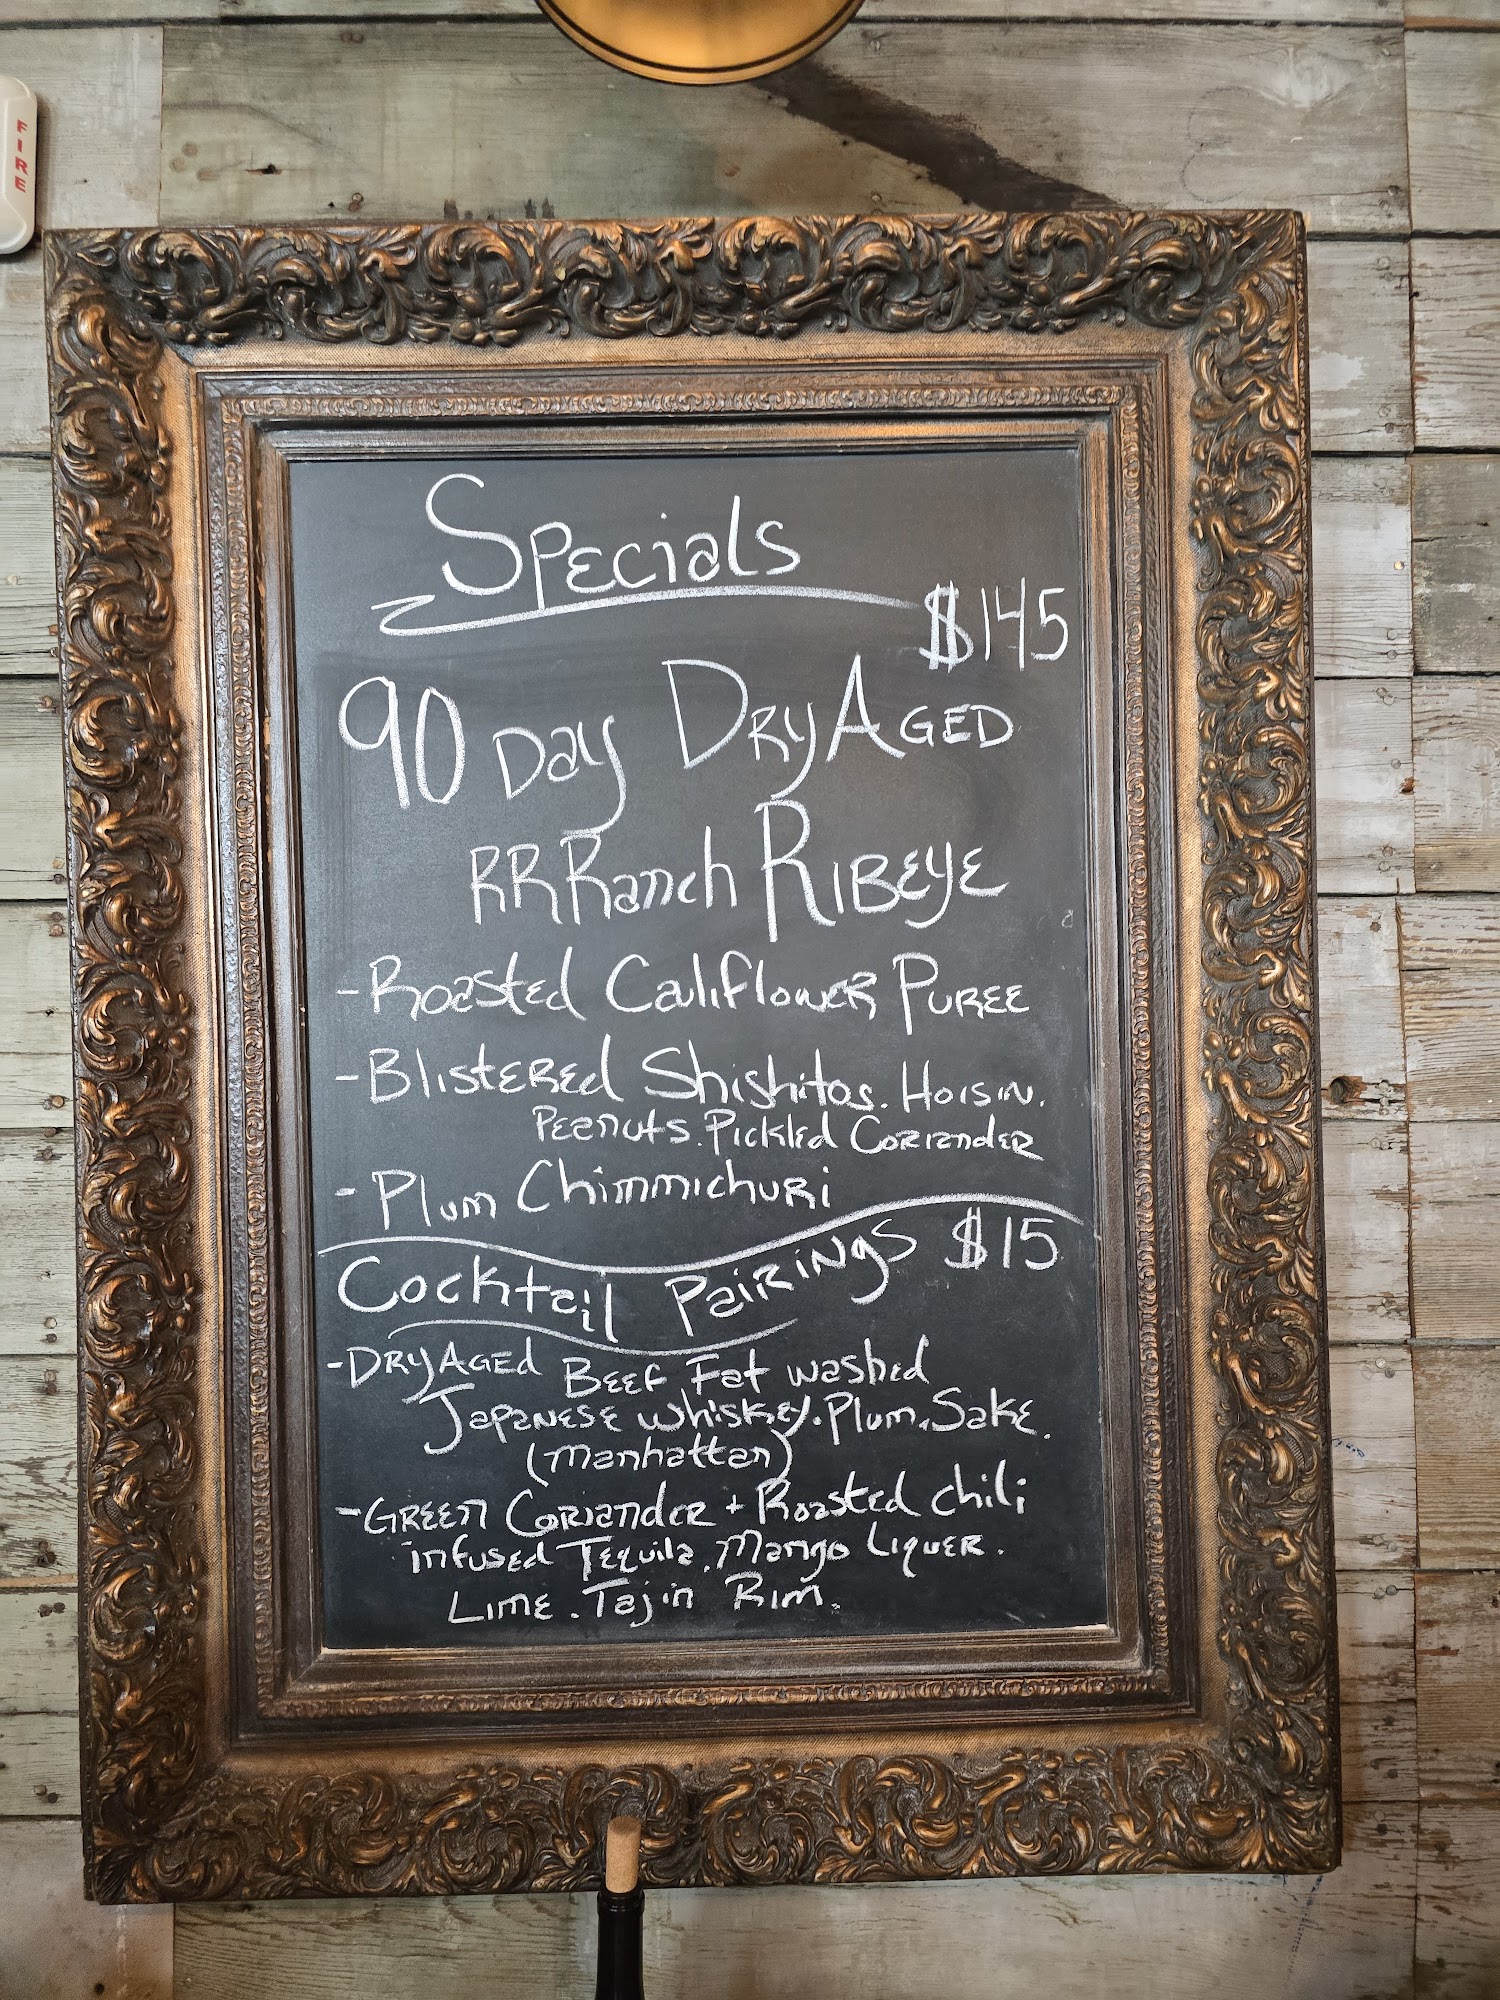 FIRE
Specials
$145
90 Day Dry Aged
RR Ranch Ribeye
-Roasted Cauliflower Puree
-Blistered Shishitos. Hoisin.
Peanuts. Pickled Coriander
-Plum Chimmichuri
Cocktail Pairings $15
-Dry Aged Beef Fat washed
Japanese whiskey. Plum. Sake.
(Manhattan)
-Green Coriander + Roasted chili
infused Tequila. Mango Liquer.
Lime. Tajin Rim.